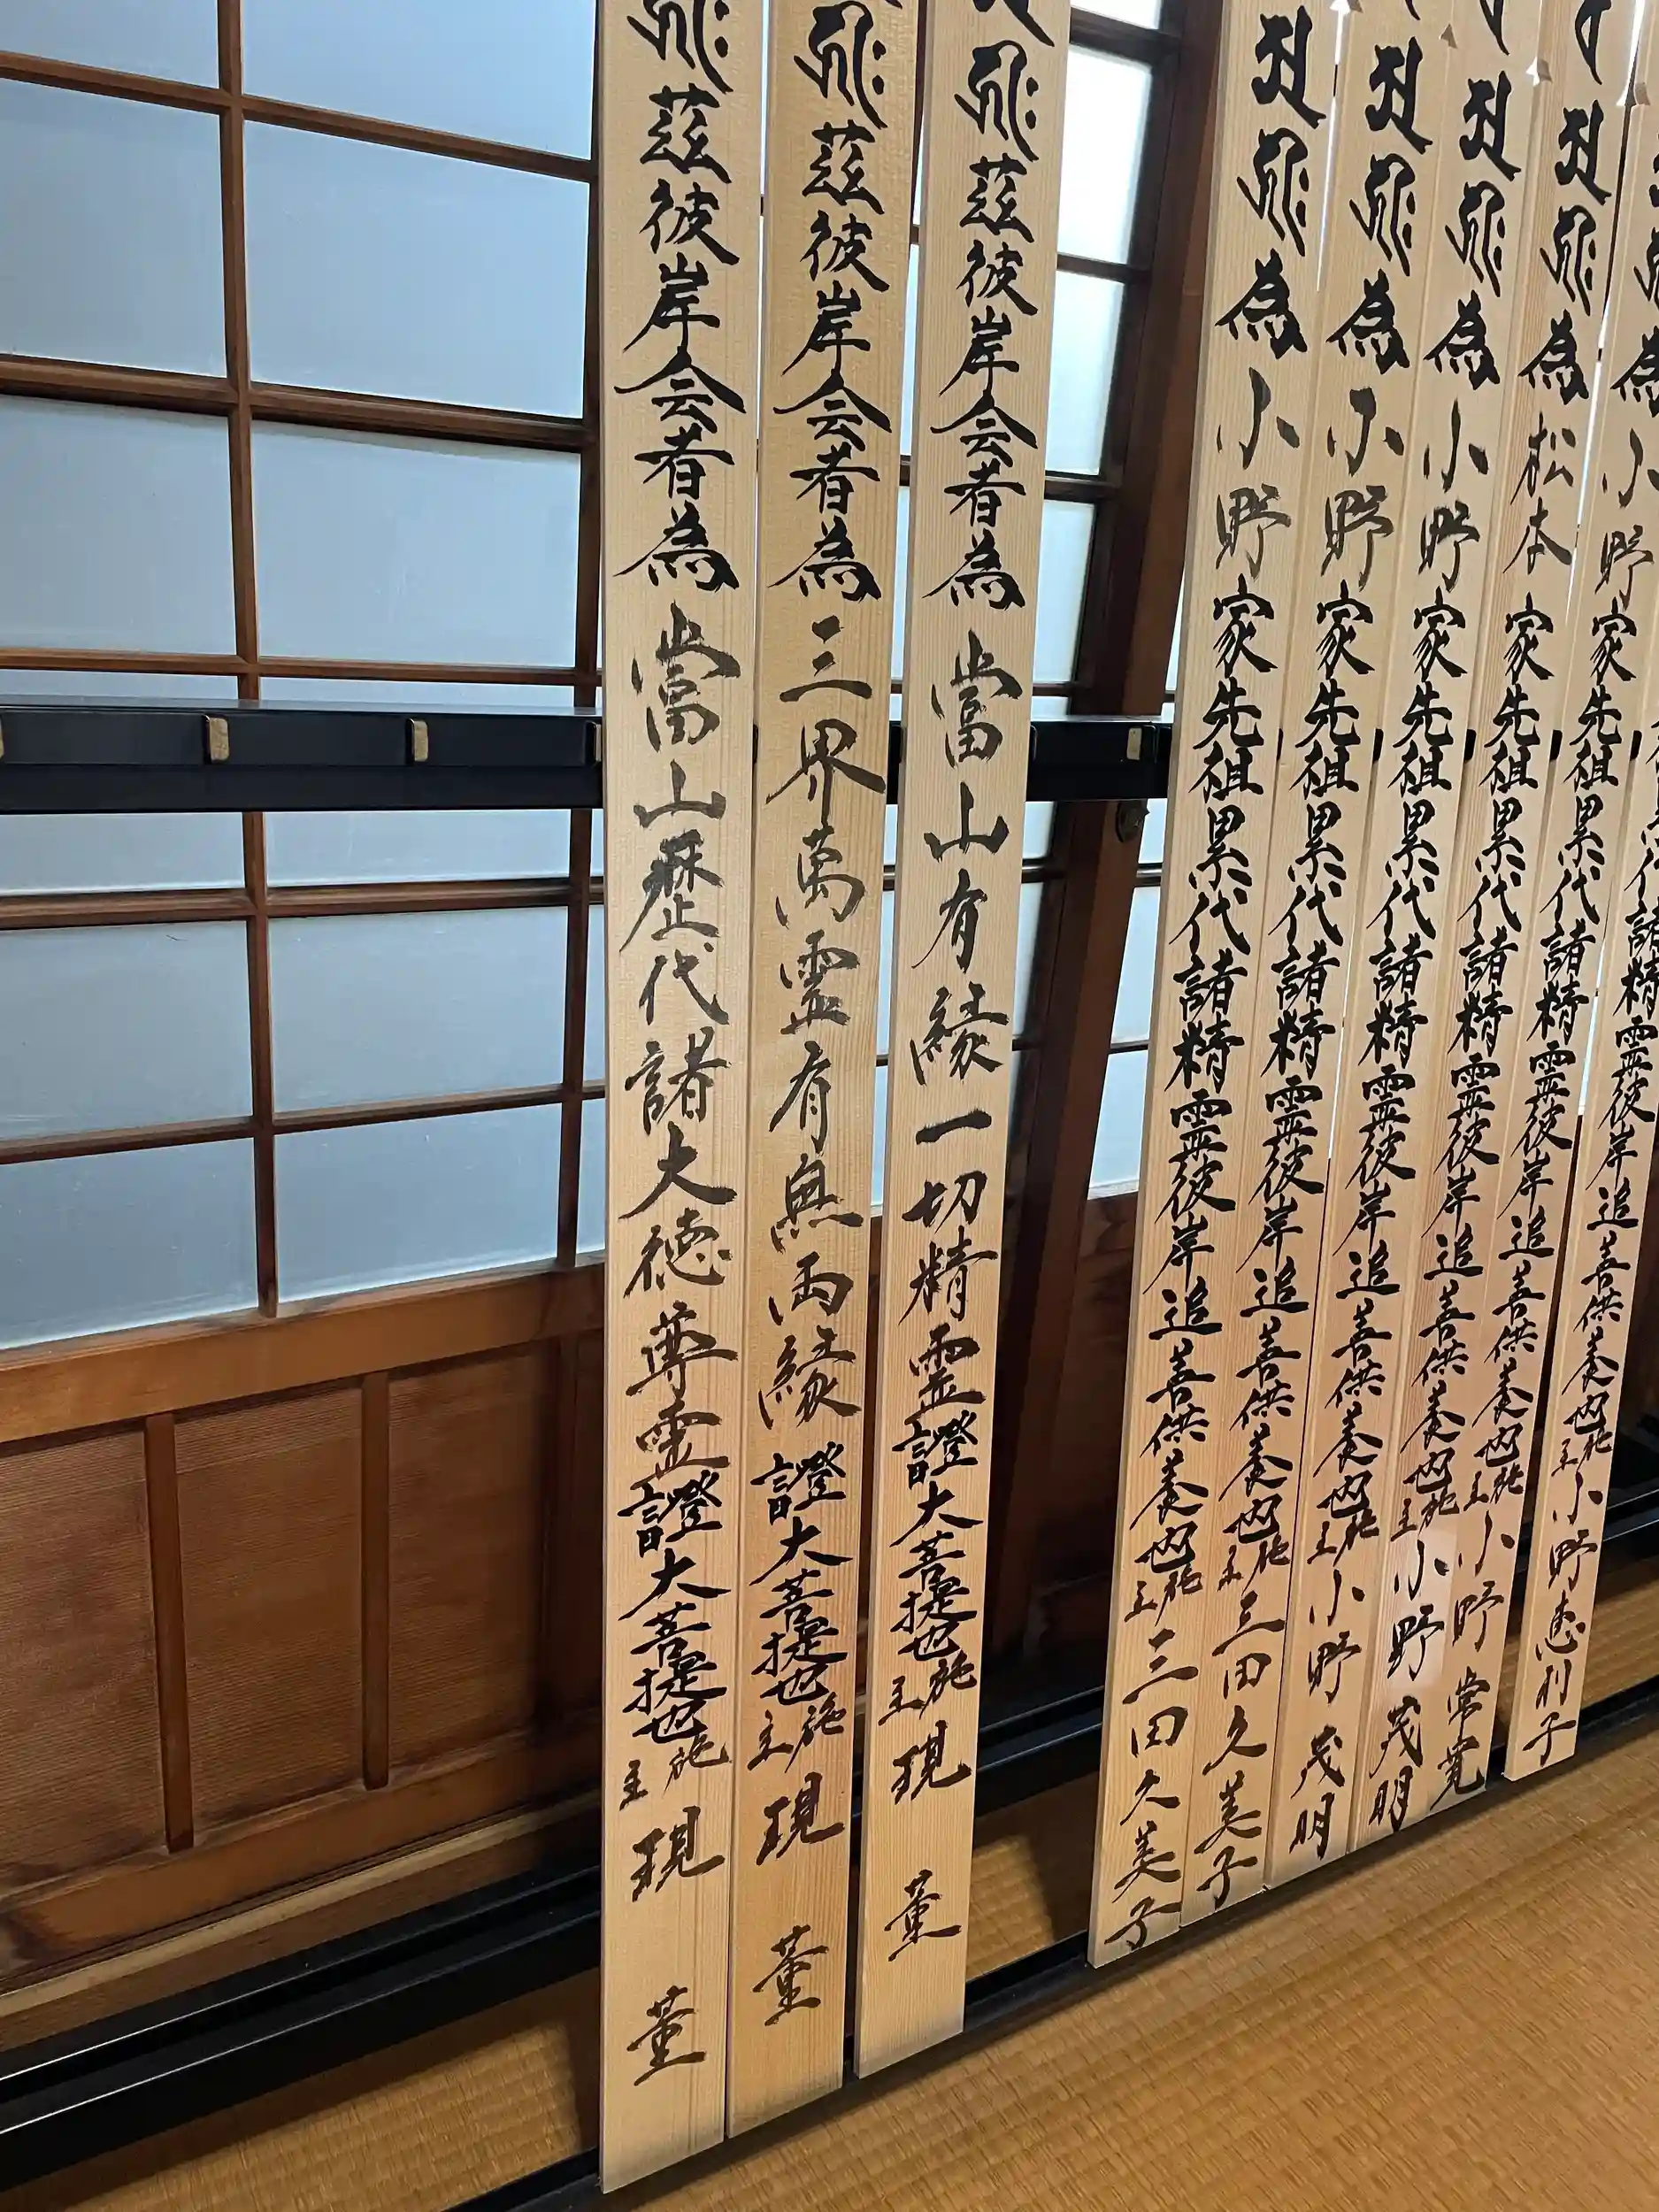 茲彼岸会者為當山歴代諸大徳尊霊證大菩提也施主現董
茲彼岸会者為三界萬霊有無両縁證大菩提也施主現董
茲彼岸会者為當山有縁一切精霊證大菩提也施主現董
為小野家先祖累代諸精霊彼岸追善供養也施主三田久美子
為小野家先祖累代諸精霊彼岸追善供養也施主三田久美子
為小野家先祖累代諸精霊彼岸追善供養也施主小野茂明
為松本家先祖累代諸精霊彼岸追善供養也施主小野茂明
為小野家先祖累代諸精霊彼岸追善供養也施主小野常寛
諸精霊彼岸追善供養也施主小野恵利子